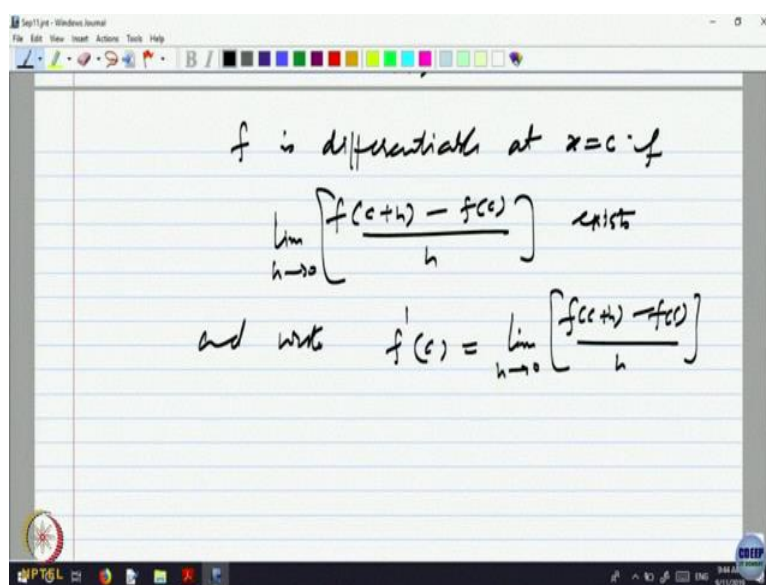 Sep11.jnt - Windows Journal
File Edit View Insert Actions Tools Help
f is differentiable at x=c if
lim h→0 [ f(c+h) - f(c) / h ] exists
and write f'(c) = lim h→0 [ f(c+h) - f(c) / h ]
NPTEL
CDEEP
ENG
9/11/2018